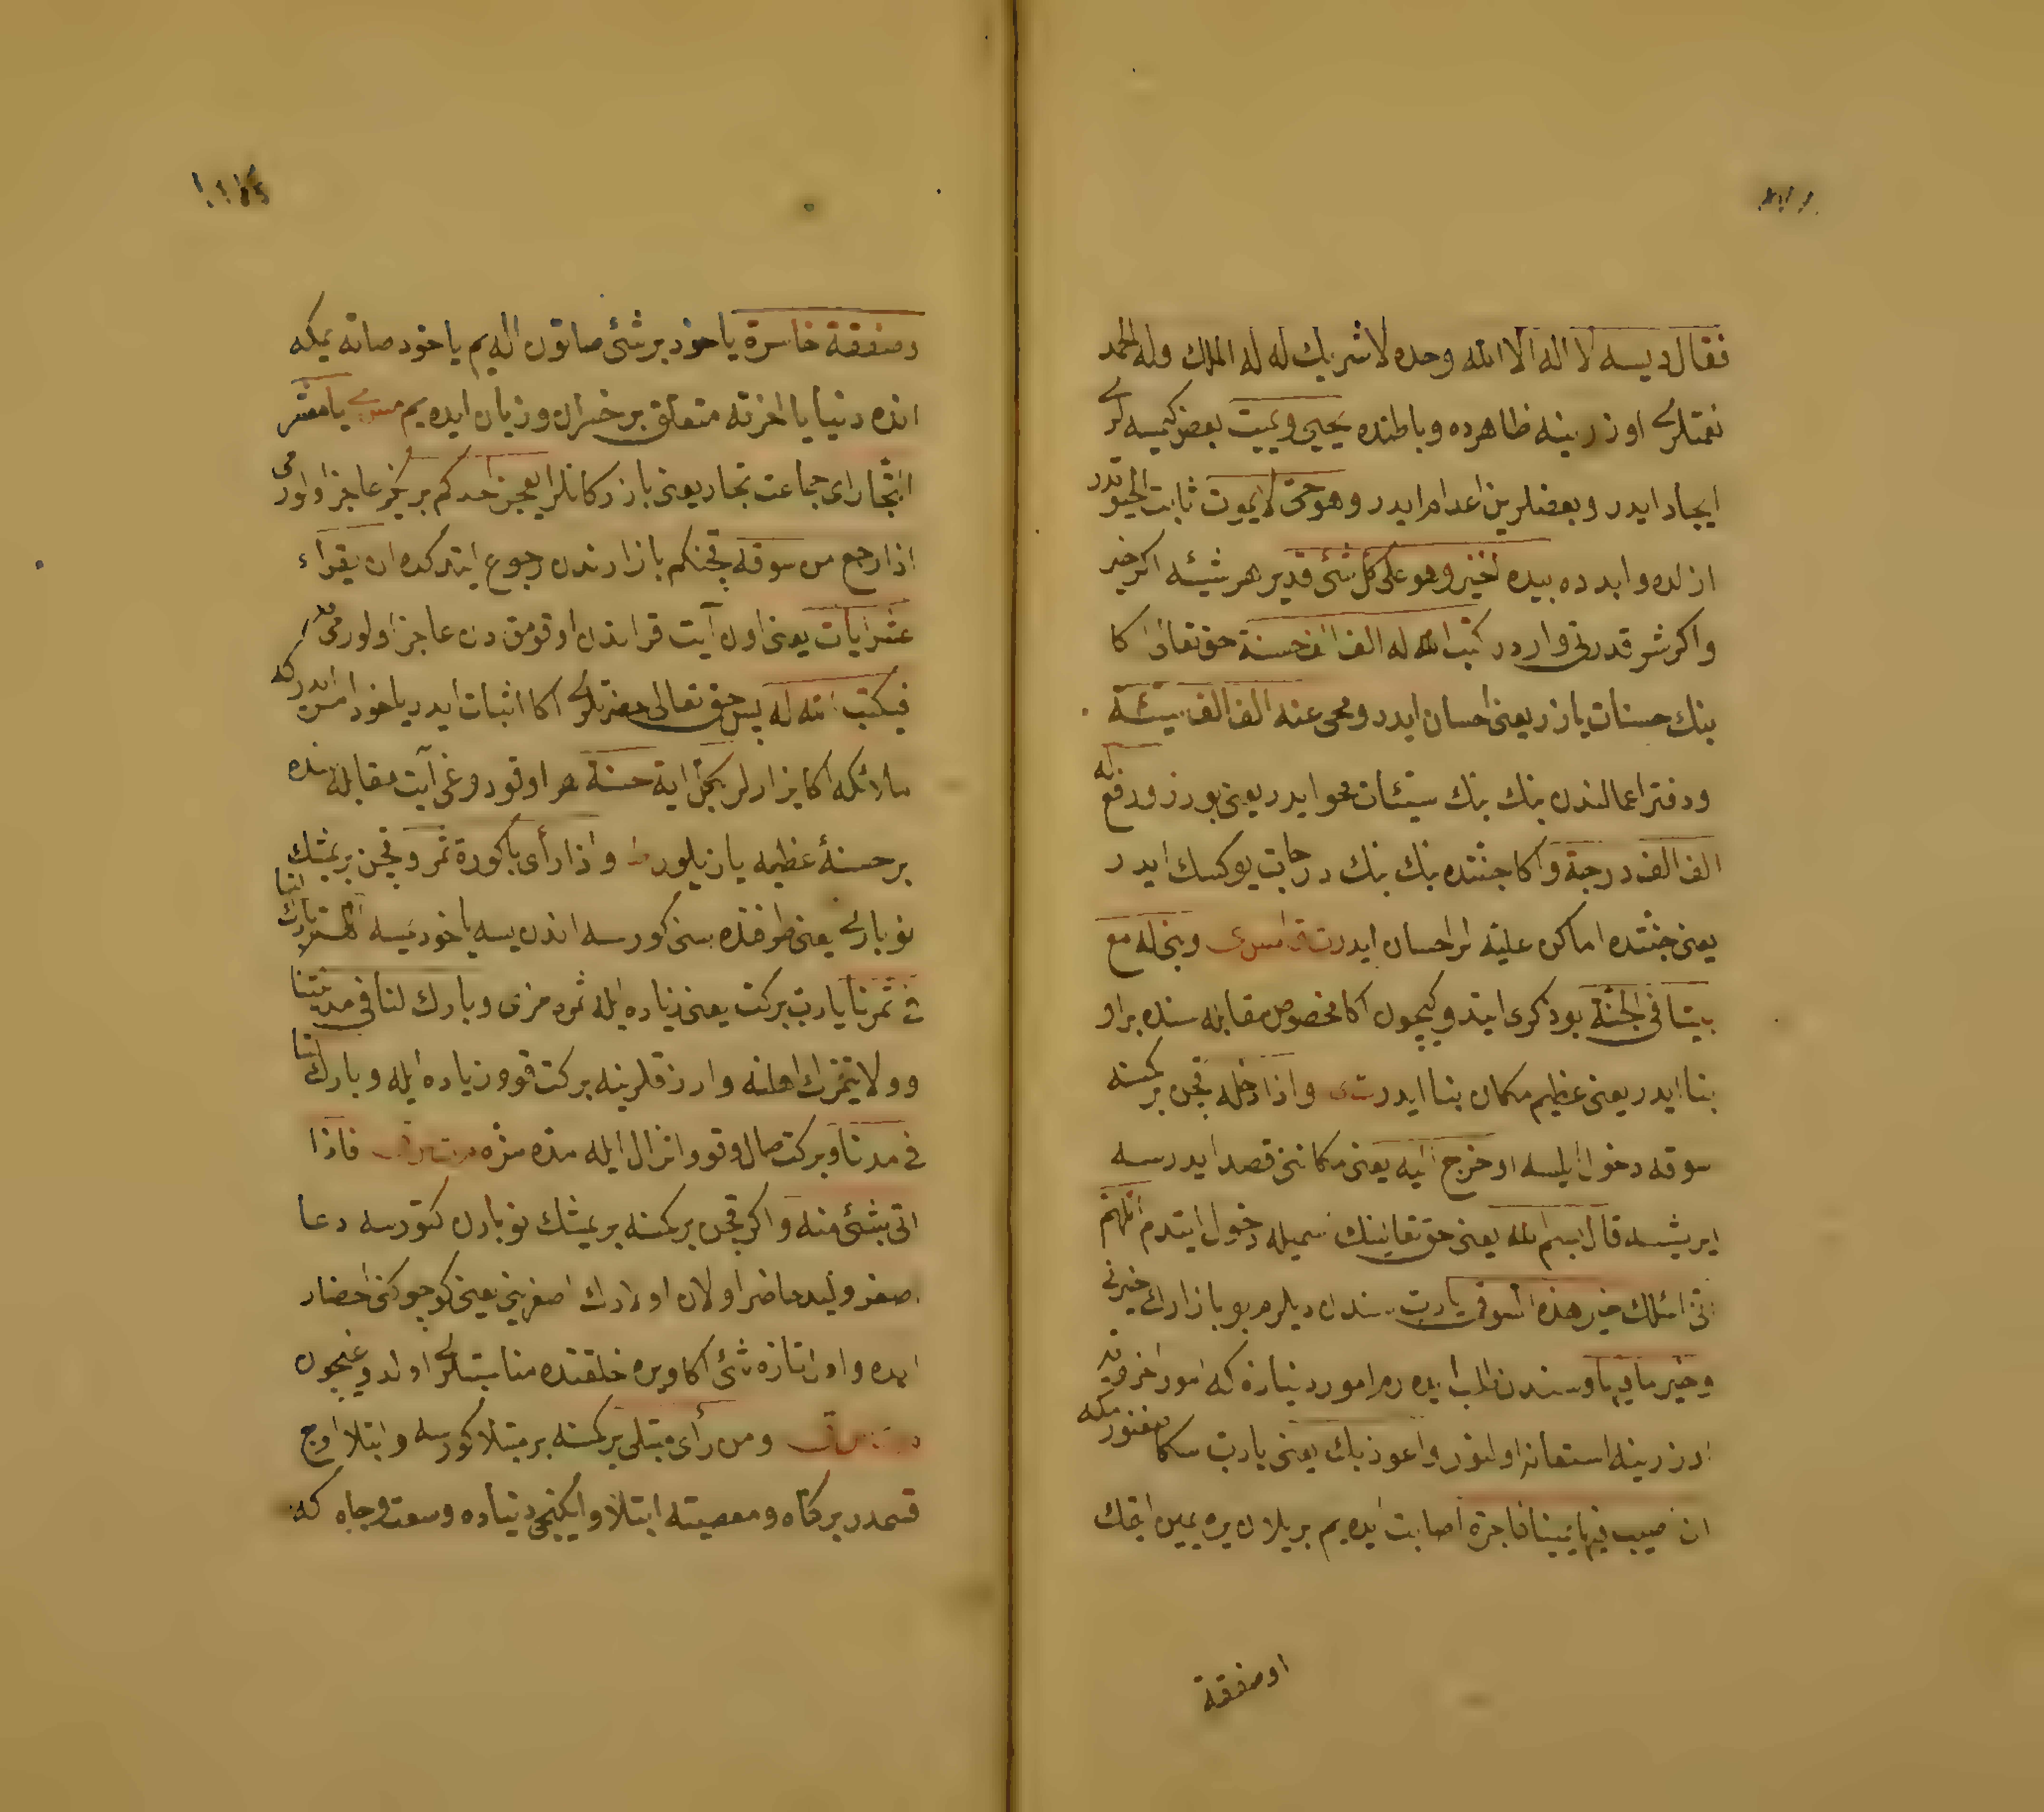 فقال دیسه لا اله الا الله وحده لا شریك له له الملك وله الحمد
نعمتلری اوزرینه ظاهرده وباطنده یحیی ویمیت بعض کیمسه لری
ایجاد ایدر وبعضلرین اعدام ایدر وهو حی لا یموت ثابت الحیوتدر
ازلده وابدده بیده الخیر وهو علی کل شئ قدیر هر شیئه اکر خیر
واکر شر قدرتی واردر کتب الله له الف الف حسنة حق تعالی اکا
بنك حسنات یازر یعنی احسان ایدر ومحی عنه الف الف سیئة
ودفتر اعمالندن بنك بنك سیئات محو ایدر یعنی بوزر ورفع له
الف الف درجة واکا جنتده بنك بنك درجات یوکسك ایدر
یعنی جنتده اماکن علیه لر احسان ایدر وبنی له مع
بیتا فی الجنة بو ذکری ایتدوکیچون اکا مخصوص مقابله سنده بر او
بنا ایدر یعنی عظیم مکان بنا ایدر واذا دخله قچن بر کمسنه
سوقه دخول ایلسه او خرج الیه یعنی مکاننی قصد ایدرسه
ایریشسه قال بسم الله یعنی حق تعالینك اسمیله دخول ایتدم اللهم
انی اسئلك خیر هذه السوق یا رب سندن دیلرم بو بازارك خیرنی
وخیر ما فیها وسندن طلب ایده رم امور دنیاده که امور اخرویه
اوزرینه استعانه اولنور واعوذ بك یعنی یا رب سکا صغنورمکه
ان اصیب فیها یمینا فاجرة اصابت ایده یم بر یلان یره یمین ایتمك
او صفقة
وصفقة خاسرة یاخود بر شئ صاتون اله یم یاخود صاته یمکه
انده دنیا یا اخرته متعلق بر خسران وزیان ایده یم یا معشر
التجار ای جماعت تجار یعنی بازرکانلر ایعجز احدکم بریکز عاجز اولورمی
اذا رجع من سوقه قچنکم بازارندن رجوع ایتدکده ان یقراء
عشر ایات یعنی اون آیت قراندن اوقومقدن عاجز اولورمی
فیکتب الله له پس حق تعالی حضرتلری اکا اثبات ایدر یاخود امر ایدر که
ملائکه اکا یزارلر بکل ایة حسنة هر اوقودوغی آیت مقابله سنده
بر حسنهٔ عظیمه یازیلور واذا رأی باکورة ثمر وقچن بر یمشك
نوبارك یعنی طرفنده سنی کورسه اندن یسه یاخود یمسه اللهم بارك لنا
فی ثمرنا یا رب برکت یعنی زیاده ایله ثمره مزی وبارك لنا فی مدینتنا
وولایتمزك اهلنه وارزقلرینه برکت قو وزیاده ایله وبارك لنا
فی مدنا وبرکت صال وقو وانزال ایله مده مزه فاذا
اتی بشئ منه واکر قچن بر کمسنه بر یمشك نوبارن کتورسه دعا
اصغر ولید حاضر اولان اولادك اصغرینی یعنی کوچوکنی احضار
ایده واول تازه شئ اکا ویره خلقتده مناسبتلری اولدوغیچون
ومن رأی مبتلی بر کمسنه بر مبتلا کورسه وابتلا اوچ
قسمدر بر کناه ومعصیته ابتلا وایکنجی دنیاده وسعت وجاه که